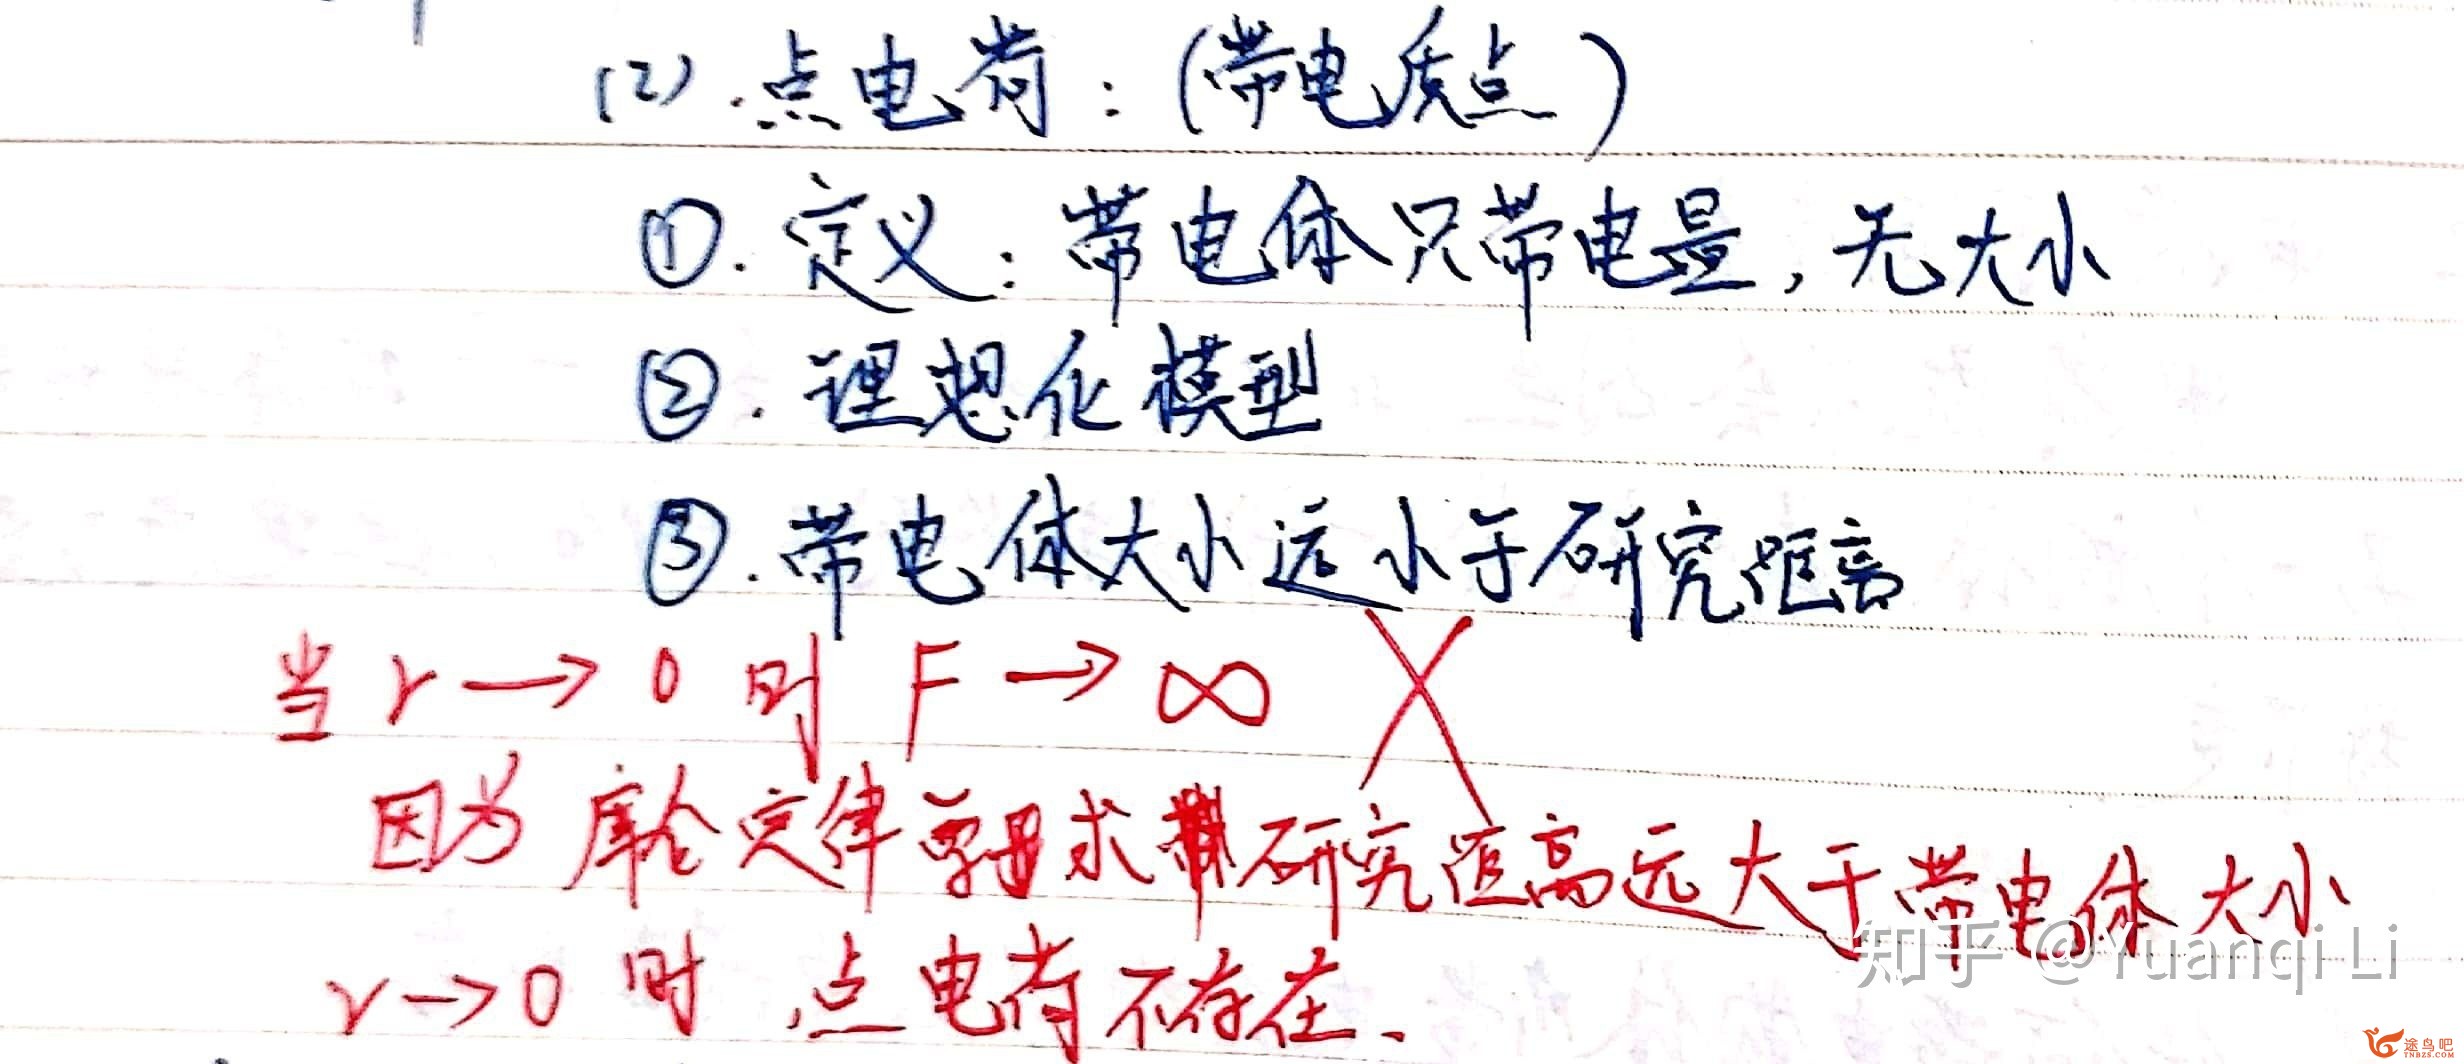 (2).点电荷：(带电质点)
①.定义：带电体只带电量，无大小
②.理想化模型
③.带电体大小远小于研究距离
当 r → 0 时 F → ∞ ×
因为库仑定律要求研究距离远大于带电体大小
r → 0 时 点电荷不存在.
知乎 @Yuanqi Li
途鸟吧
TNBZS.COM